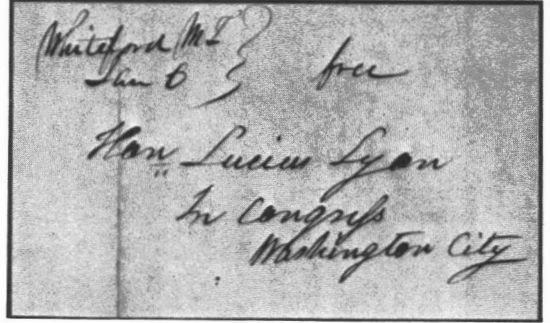 Whiteford M T
Jan 6
free
Hon Lucius Lyon
In Congress
Washington City